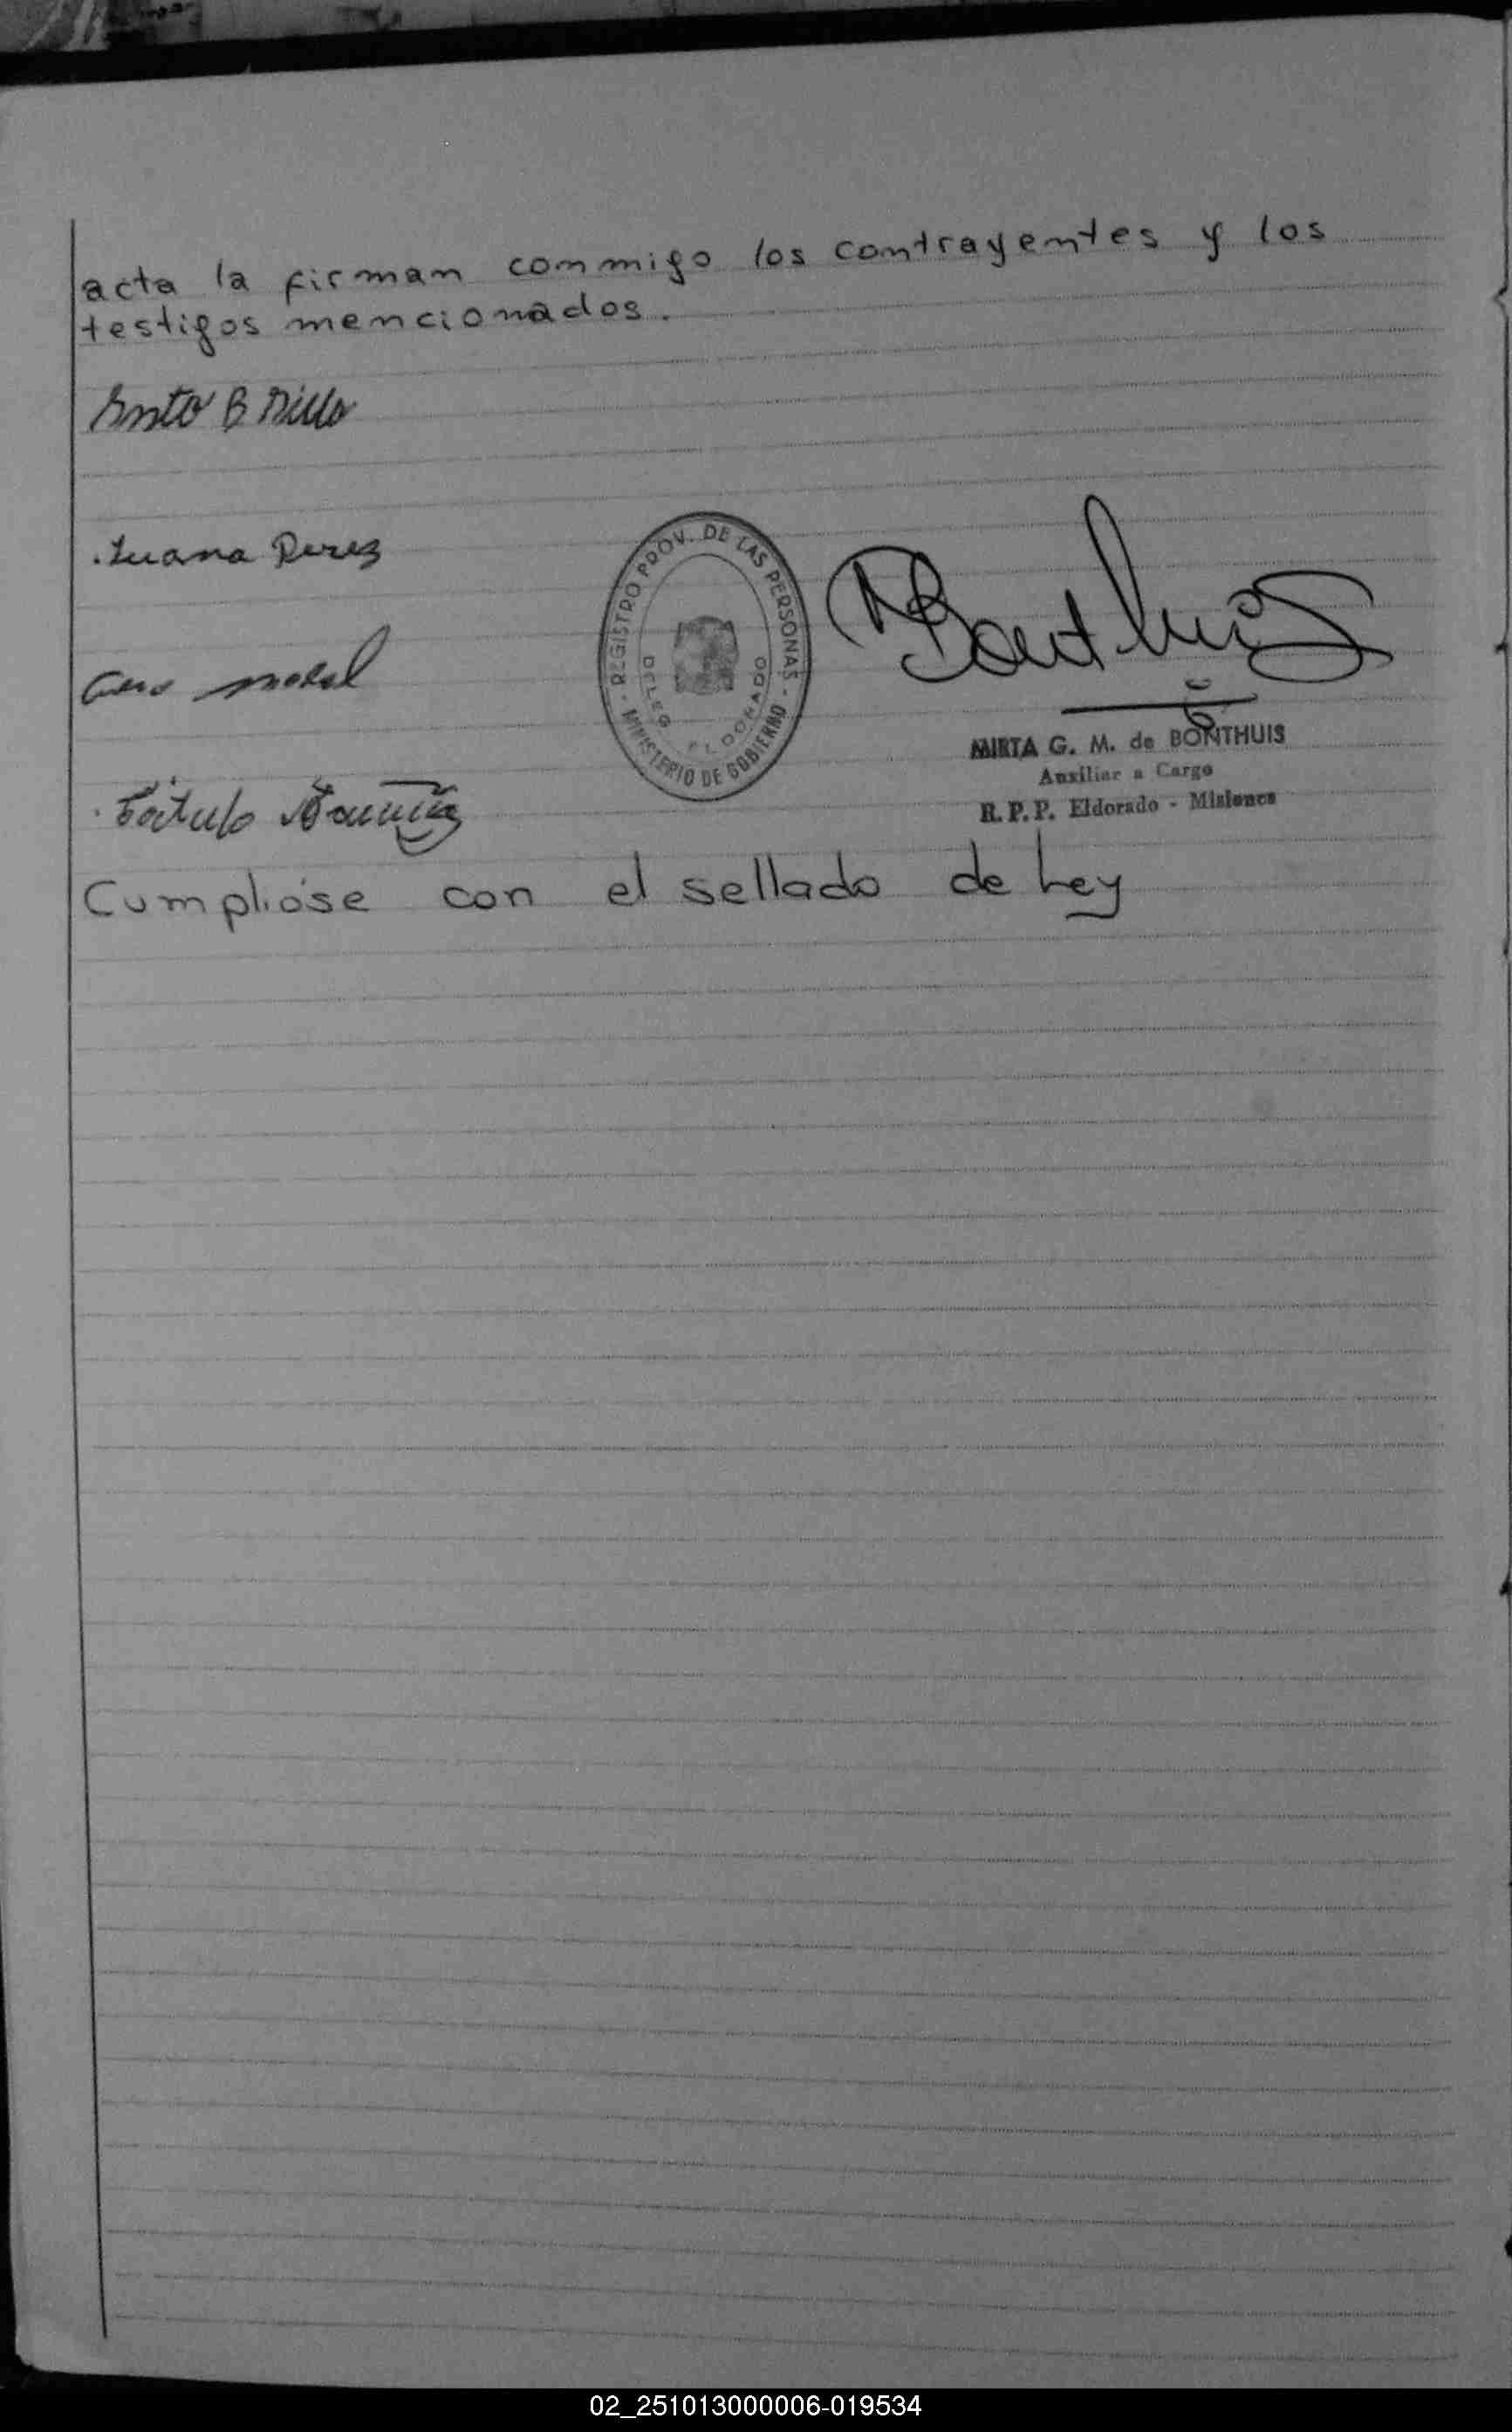 acta la firman conmmigo los contrayentes y los
testigos mencionados.
B
Juana Perez
REGISTRO PROV. DE LAS PERSONAS - MINISTERIO DE GOBIERNO -
DELEG ELDORADO
MBonthuis
MIRTA G. M. de BONTHUIS
Auxiliar a Cargo
R.P.P. Eldorado - Misiones
Cumplióse con el sellado de Ley
02_251013000006-019534